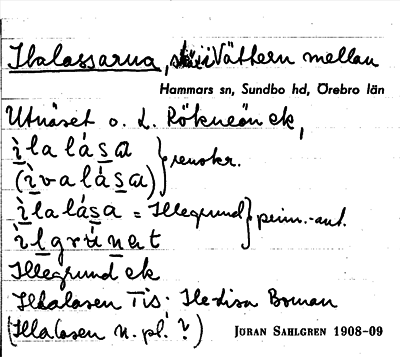 Ilalassarna, i Vättern mellan
Hammars sn, Sundbo hd, Örebro län
Utnäset o. L. Rökneön ek,
ìlalása
(ìvalása) } renskr.
ìlalása = Illegrund
ìlgrúnat } prim.-ant.
Illegrund ek
Illalasen Tis: Hedisa Boman
(Illalasen n. pl. ?)
JÖRAN SAHLGREN 1908-09